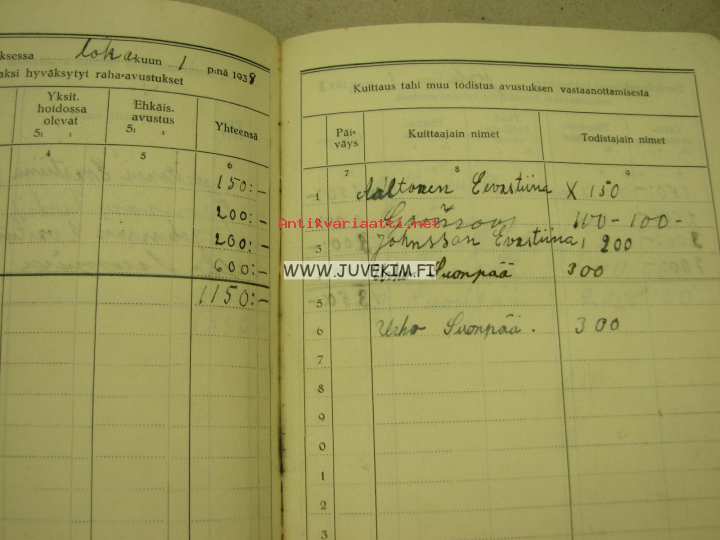 ksessa loka kuun 1 p:nä 1938
aksi hyväksytyt raha-avustukset
Yksit. hoidossa olevat 5: :
Ehkäis. avustus 5: :
Yhteensä
4 5 6
150:-
200:-
200:-
600:-
1150:-
Kuittaus tahi muu todistus avustuksen vastaanottamisesta
Päiväys
Kuittaajain nimet
Todistajain nimet
7 8 9
1 Aaltonen Evastiina X 150
100-100-
3 Johnsson Evastiina 200
Suonpää 300
5
6 Urho Suonpää. 300
7
8
9
0
1
2
3
Antikvariaatti.net
WWW.JUVEKIM.FI